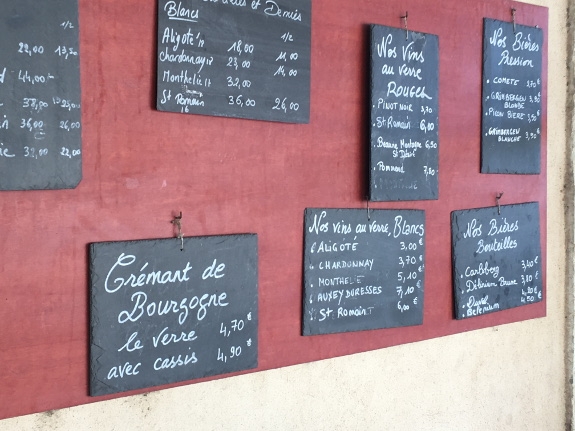 1/2
22,00 13,50
44,00
38,00 25,00
36,00 26,00
32,00 22,00
et Demis
Blancs 1/2
Aligoté 17 18,00 11,00
chardonnay 17 23,00 14,00
Monthelie 17 32,00
St Romain 36,00 26,00
16
Nos Vins
au verre
ROUGES
PINOT NOIR 3,70
St Romain 6,00
Beaune Montagne 6,50
St Désiré
Pommard 7,80
Nos Bières
Pression
• COMETE 2,70 €
• GRIMBERGEN 3,90
BLONDE
• Picon BIERE 3,50
• GRIMBERGEN 3,90
BLANCHE
Crémant de
Bourgogne
le verre 4,70 €
avec cassis 4,90 €
Nos vins au verre, Blancs
ALIGOTÉ 3,00 €
CHARDONNAY 3,70 €
MONTHELIE 5,10 €
AUXEY DURESSES 7,10 €
St Romain 6,00 €
Nos Bières
Bouteilles
• Carlsberg 3,40 €
• Pelforth Brune 3,80 €
• Duvel 4,20 €
4,50 €